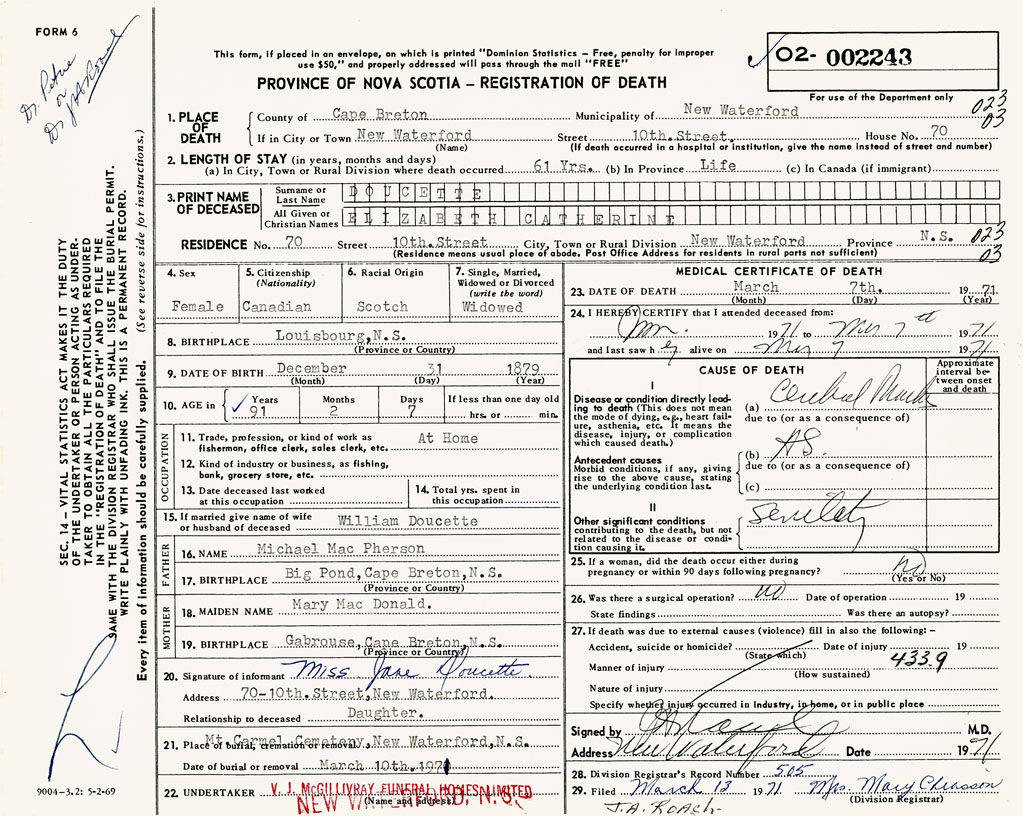 FORM 6
Dr. Petrie
or
Dr. JA Roach
This form, if placed in an envelope, on which is printed "Dominion Statistics – Free, penalty for improper
use $50," and properly addressed will pass through the mail "FREE"
02- 002243
PROVINCE OF NOVA SCOTIA – REGISTRATION OF DEATH
For use of the Department only
1. PLACE OF DEATH
County of Cape Breton Municipality of New Waterford 023
03
If in City or Town New Waterford Street 10th.Street. House No. 70
(Name) (If death occurred in a hospital or institution, give the name instead of street and number)
2. LENGTH OF STAY (in years, months and days)
(a) In City, Town or Rural Division where death occurred 61 Yrs. (b) In Province Life (c) In Canada (if immigrant)
3. PRINT NAME OF DECEASED
Surname or Last Name DOUCETTE
All Given or Christian Names ELIZABETH CATHERINE
RESIDENCE No. 70 Street 10th.Street City, Town or Rural Division New Waterford Province N.S. 023
03
(Residence means usual place of abode. Post Office Address for residents in rural parts not sufficient)
4. Sex
Female
5. Citizenship
(Nationality)
Canadian
6. Racial Origin
Scotch
7. Single, Married,
Widowed or Divorced
(write the word)
Widowed
8. BIRTHPLACE Louisbourg,N.S.
(Province or Country)
9. DATE OF BIRTH December 31 1879
(Month) (Day) (Year)
10. AGE in
Years Months Days If less than one day old
91 2 7 hrs. or min.
OCCUPATION
11. Trade, profession, or kind of work as
fisherman, office clerk, sales clerk, etc. At Home
12. Kind of industry or business, as fishing,
bank, grocery store, etc.
13. Date deceased last worked
at this occupation
14. Total yrs. spent in
this occupation
15. If married give name of wife
or husband of deceased William Doucette
FATHER
16. NAME Michael Mac Pherson
17. BIRTHPLACE Big Pond,Cape Breton,N.S.
(Province or Country)
MOTHER
18. MAIDEN NAME Mary Mac Donald.
19. BIRTHPLACE Gabrouse,Cape Breton,N.S.
(Province or Country)
20. Signature of informant Miss Jane Doucette
Address 70-10th.Street,New Waterford.
Relationship to deceased Daughter.
21. Place of burial, cremation or removal Mt.Carmel Cemetety,New Waterford,N.S.
Date of burial or removal March 10th.1971
22. UNDERTAKER V. J. McGILLIVRAY FUNERAL HOMES LIMITED
(Name and address)
NEW WATERFORD, N. S.
MEDICAL CERTIFICATE OF DEATH
23. DATE OF DEATH March 7th. 1971
(Month) (Day) (Year)
24. I HEREBY CERTIFY that I attended deceased from:
1971 to 7th 1971
and last saw h er alive on 7 1971
CAUSE OF DEATH
Approximate
interval be-
tween onset
and death
I
Disease or condition directly lead-
ing to death (This does not mean
the mode of dying, e.g., heart fail-
ure, asthenia, etc. It means the
disease, injury, or complication
which caused death.)
(a) Cerebral
due to (or as a consequence of)
Antecedent causes
Morbid conditions, if any, giving
rise to the above cause, stating
the underlying condition last.
(b) AS.
due to (or as a consequence of)
(c)
II
Other significant conditions
contributing to the death, but not
related to the disease or condi-
tion causing it.
Senility
25. If a woman, did the death occur either during
pregnancy or within 90 days following pregnancy? No
(Yes or No)
26. Was there a surgical operation? no Date of operation 19
State findings Was there an autopsy?
27. If death was due to external causes (violence) fill in also the following: –
Accident, suicide or homicide? Date of injury 19
(State which)
4339
Manner of injury
(How sustained)
Nature of injury
Specify whether injury occurred in industry, in home, or in public place
Signed by M.D.
Address New Waterford Date 1971
28. Division Registrar's Record Number 505
29. Filed March 12 1971 Mrs. Mary Chiasson
(Division Registrar)
J.A. ROACH
SEC. 14 – VITAL STATISTICS ACT MAKES IT THE DUTY
OF THE UNDERTAKER OR PERSON ACTING AS UNDER-
TAKER TO OBTAIN ALL THE PARTICULARS REQUIRED
IN THE "REGISTRATION OF DEATH" AND TO FILE THE
SAME WITH THE DIVISION REGISTRAR WHO SHALL ISSUE THE BURIAL PERMIT.
WRITE PLAINLY WITH UNFADING INK. THIS IS A PERMANENT RECORD.
Every item of information should be carefully supplied. (See reverse side for instructions.)
9004-3.2: 5-2-69